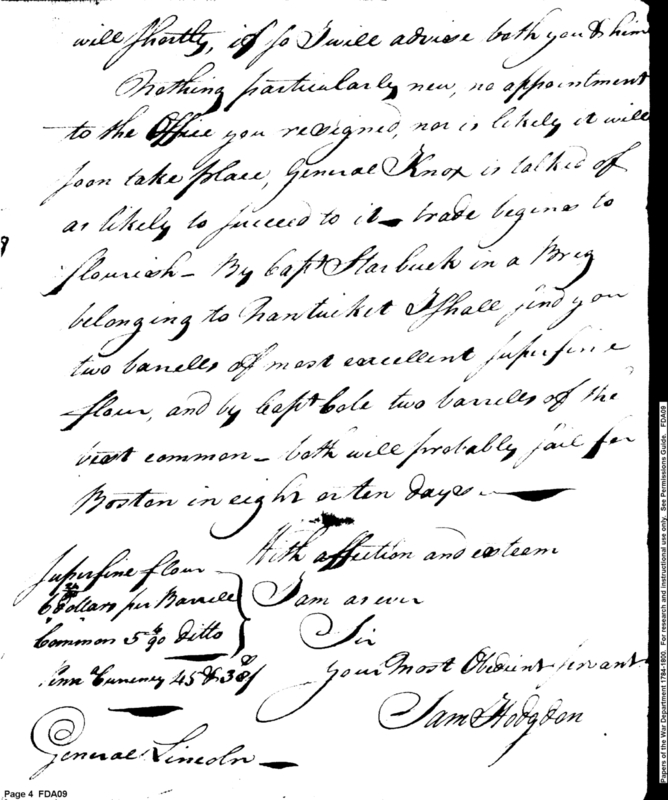 will shortly, if so I will advise both you & him
Nothing particularly new, no appointment
to the Office you resigned, nor is likely it will
soon take place, General Knox is talked of
as likely to succeed to it – trade begins to
flourish – By Capt Starbuck in a Brig
belonging to Nantucket I shall send you
two barrells of most excellent superfine
flour, and by Capt Cole two barrells of the
best common – both will probably sail for
Boston in eight or ten days –
With affection and esteem
I am as ever
Sir
your Most Obedient servant
Sam Hodgdon
Superfine flour
6 Dollars per Barrell
Common 5 ditto
Penn Currency 45 & 38/
General Lincoln –
Page 4 FDA09
Papers of the War Department 1784-1800. For research and instructional use only. See Permissions Guide. FDA09